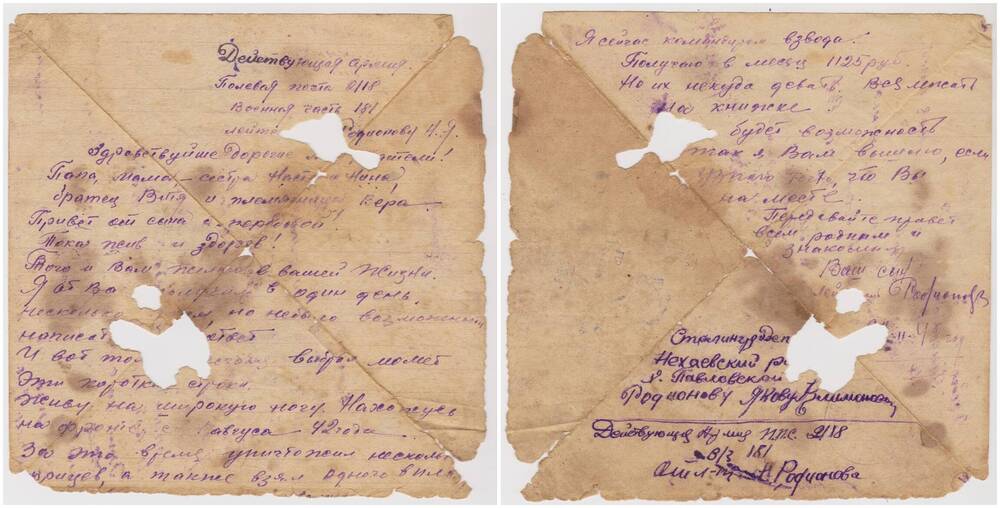 Действующая армия.
Полевая почта 2/18
Военная часть 181
лейте Родионову И.Я.
Здравствуйте Дорогие родители!
Папа, Мама, – сестра Настя Нина
братец Витя и племянница Вера.
Привет от сына с
Пока жив и здоров!
Того и Вам желаю в вашей жизни.
Я от Вас получил в один день.
несколько но небыло возможности
написать ответ
И вот выбрал момет
Эти коротки строки.
Живу на широкую ногу. Нахожусь
на фронте с августа 42 года
За это время уничтожил несколь
фрицев, а также взял одного в плен
Я сейчас командиром взвода.
Получаю в месяц 1125 руб.
Но их некуда девать. Все
На книжке
будет возможность
так я Вам вышлю, если
что Вы
на месте.
Передавайте привет
всем родным и
знакомым
Ваш сын
Родионов
Сталинград
Нехаевский ра
х. Павловской
Родионову Якову Климовичу
Действующая Армия ППС 2/18
в/ч 181
От л-т Родионова